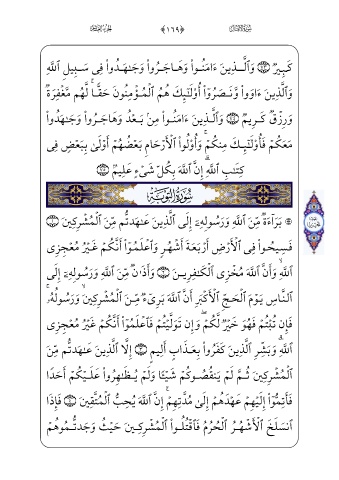 سورة الأنفال ﴿١٦٩﴾ الجزء العاشر
كَبِيرٌ ﴿٧٣﴾ وَالَّذِينَ ءَامَنُوا۟ وَهَاجَرُوا۟ وَجَـٰهَدُوا۟ فِى سَبِيلِ اللَّهِ
وَالَّذِينَ ءَاوَوا۟ وَّنَصَرُوٓا۟ أُو۟لَـٰٓئِكَ هُمُ الْمُؤْمِنُونَ حَقًّا ۚ لَّهُم مَّغْفِرَةٌ
وَرِزْقٌ كَرِيمٌ ﴿٧٤﴾ وَالَّذِينَ ءَامَنُوا۟ مِنۢ بَعْدُ وَهَاجَرُوا۟ وَجَـٰهَدُوا۟
مَعَكُمْ فَأُو۟لَـٰٓئِكَ مِنكُمْ ۚ وَأُو۟لُوا۟ الْأَرْحَامِ بَعْضُهُمْ أَوْلَىٰ بِبَعْضٍ فِى
كِتَـٰبِ اللَّهِ ۗ إِنَّ اللَّهَ بِكُلِّ شَىْءٍ عَلِيمٌۢ ﴿٧٥﴾
سُورَةُ التَّوْبَةِ
بَرَآءَةٌ مِّنَ اللَّهِ وَرَسُولِهِۦٓ إِلَى الَّذِينَ عَـٰهَدتُّم مِّنَ الْمُشْرِكِينَ ﴿١﴾
فَسِيحُوا۟ فِى الْأَرْضِ أَرْبَعَةَ أَشْهُرٍ وَاعْلَمُوٓا۟ أَنَّكُمْ غَيْرُ مُعْجِزِى
اللَّهِ ۙ وَأَنَّ اللَّهَ مُخْزِى الْكَـٰفِرِينَ ﴿٢﴾ وَأَذَٰنٌ مِّنَ اللَّهِ وَرَسُولِهِۦٓ إِلَى
النَّاسِ يَوْمَ الْحَجِّ الْأَكْبَرِ أَنَّ اللَّهَ بَرِىٓءٌ مِّنَ الْمُشْرِكِينَ ۙ وَرَسُولُهُۥ ۚ
فَإِن تُبْتُمْ فَهُوَ خَيْرٌ لَّكُمْ ۖ وَإِن تَوَلَّيْتُمْ فَاعْلَمُوٓا۟ أَنَّكُمْ غَيْرُ مُعْجِزِى
اللَّهِ ۗ وَبَشِّرِ الَّذِينَ كَفَرُوا۟ بِعَذَابٍ أَلِيمٍ ﴿٣﴾ إِلَّا الَّذِينَ عَـٰهَدتُّم مِّنَ
الْمُشْرِكِينَ ثُمَّ لَمْ يَنقُصُوكُمْ شَيْـًٔا وَلَمْ يُظَـٰهِرُوا۟ عَلَيْكُمْ أَحَدًا
فَأَتِمُّوٓا۟ إِلَيْهِمْ عَهْدَهُمْ إِلَىٰ مُدَّتِهِمْ ۚ إِنَّ اللَّهَ يُحِبُّ الْمُتَّقِينَ ﴿٤﴾ فَإِذَا
انسَلَخَ الْأَشْهُرُ الْحُرُمُ فَاقْتُلُوا۟ الْمُشْرِكِينَ حَيْثُ وَجَدتُّمُوهُمْ